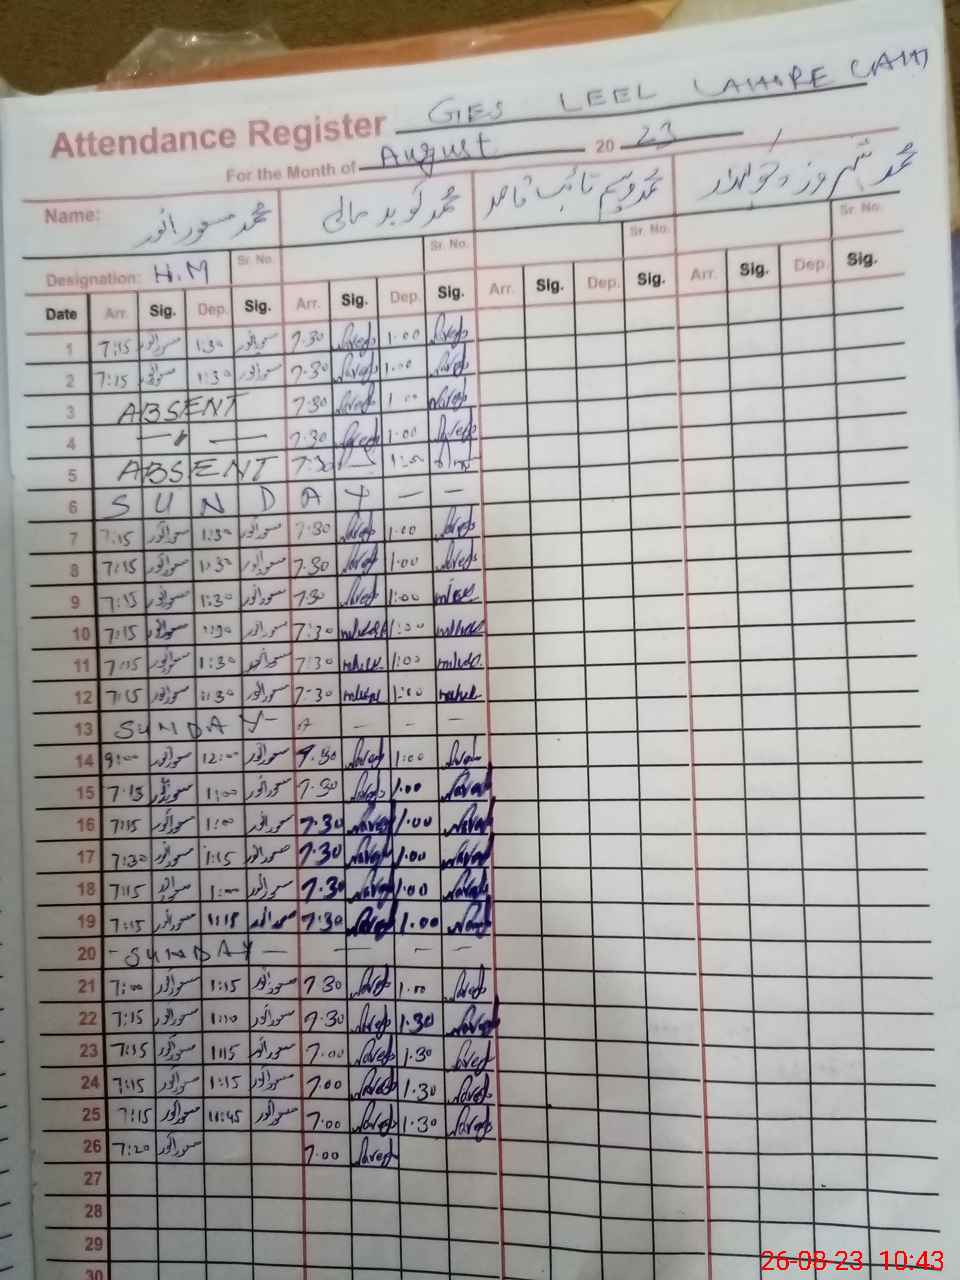 Attendance Register GES LEEL LAHORE CANTT
For the Month of August 20 23
Name: محمد مسعود انور محمد نوید مالی محمد وسیم نائب قاصد محمد شہروز چوکیدار
Designation: H.M Sr. No. Sr. No. Sr. No. Sr. No.
Date Arr. Sig. Dep. Sig. Arr. Sig. Dep. Sig. Arr. Sig. Dep. Sig. Arr. Sig. Dep. Sig.
1 7:15 مسعود انور 1:30 مسعود انور 7.30 Naveed 1.00 Naveed
2 7:15 مسعود انور 1:30 مسعود انور 7.30 Naveed 1.00 Naveed
3 ABSENT 7.30 Naveed 1.00 Naveed
4 — 〃 — 7.30 Naveed 1.00 Naveed
5 ABSENT 7:30 1:00
6 S U N D A Y — —
7 7:15 مسعود انور 1:30 مسعود انور 7.30 Naveed 1.00 Naveed
8 7:15 مسعود انور 1:30 مسعود انور 7.30 Naveed 1.00 Naveed
9 7:15 مسعود انور 1:30 مسعود انور 7.30 Naveed 1:00
10 7:15 مسعود انور 1:30 مسعود انور 7:30 1:00
11 7:15 مسعود انور 1:30 مسعود انور 7:30 1:00
12 7:15 مسعود انور 1:30 مسعود انور 7:30 1:00
13 SUNDAY — — — —
14 9:00 مسعود انور 12:00 مسعود انور 7.30 Naveed 1:00 Naveed
15 7:15 مسعود انور 1:00 مسعود انور 7.30 Naveed 1.00 Naveed
16 7:15 مسعود انور 1:00 مسعود انور 7.30 Naveed 1.00 Naveed
17 7:30 مسعود انور 1:15 مسعود انور 7.30 Naveed 1.00 Naveed
18 7:15 مسعود انور 1:00 مسعود انور 7.30 Naveed 1.00 Naveed
19 7:15 مسعود انور مسعود انور 7.30 Naveed 1.00 Naveed
20 - SUNDAY — — — —
21 7:00 مسعود انور 1:15 مسعود انور 7.30 Naveed 1.00 Naveed
22 7:15 مسعود انور 1:10 مسعود انور 7.30 Naveed 1.30 Naveed
23 7:15 مسعود انور 1:15 مسعود انور 7.00 Naveed 1.30 Naveed
24 7:15 مسعود انور 1:15 مسعود انور 7.00 Naveed 1.30 Naveed
25 7:15 مسعود انور 11:45 مسعود انور 7.00 Naveed 1.30 Naveed
26 7:20 مسعود انور 7.00 Naveed
27
28
29
30
26-08-23 10:43